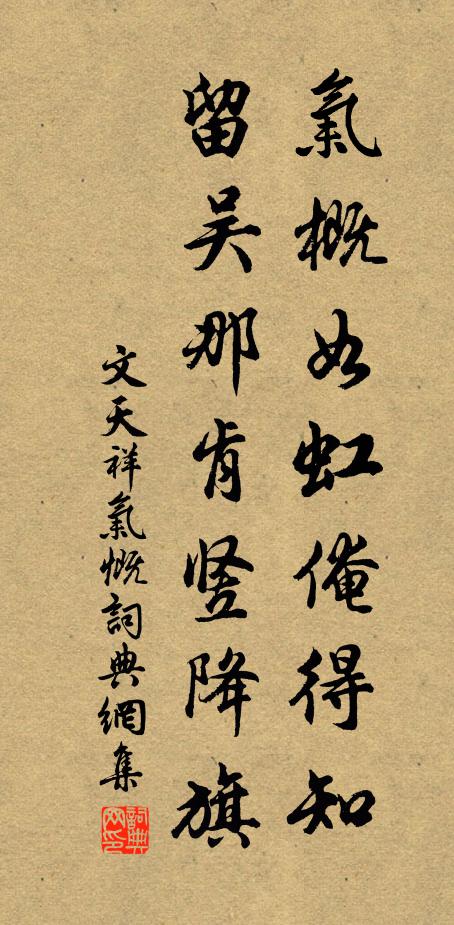 氣概如虹俺得知
留吴那肯竖降旗
文天祥氣慨詞典網集
詞典網印